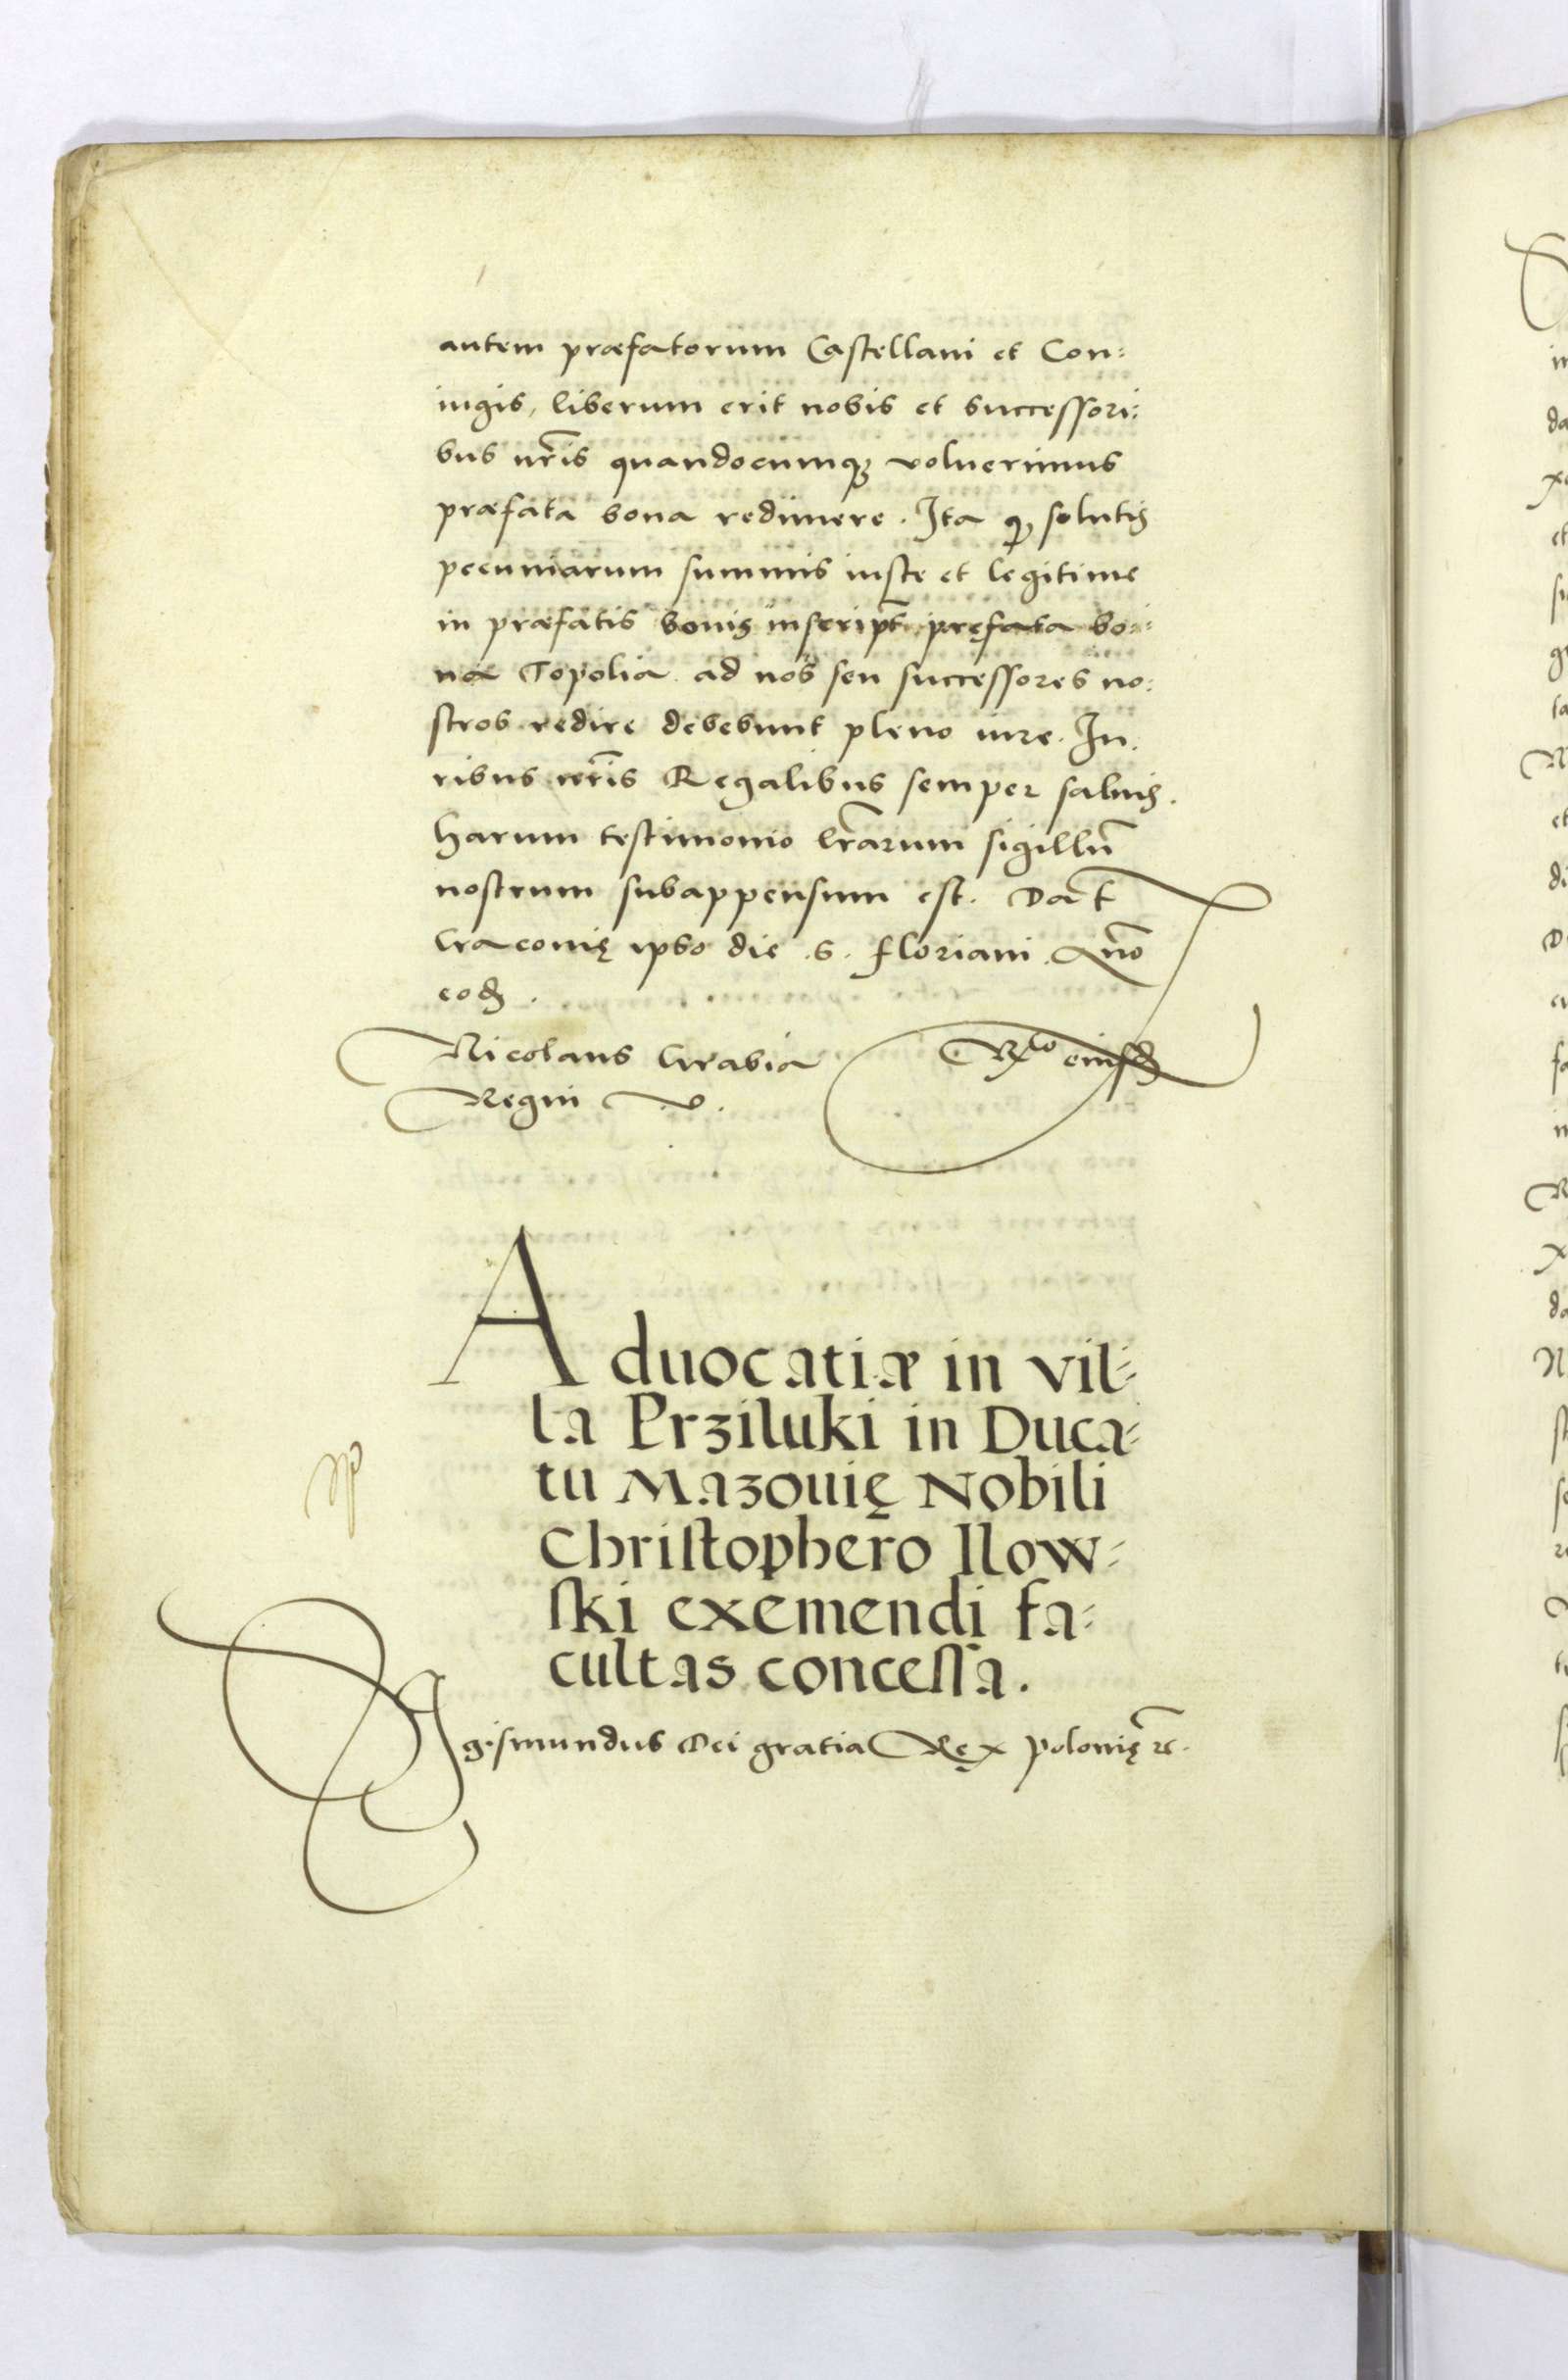 autem præfatorum Castellani et Con:
iugis, liberum erit nobis et successori:
bus nr̃is quandocumq3 voluerimus
præfata bona redimere. Ita q, solutis
pecuniarum summis iuste et legitime
in præfatis bonis inscript, pręfata bo:
na Topolia ad nos seu successores no:
stros redire debebunt pleno iure. Iu:
ribus nr̃is Regalibus semper saluis.
harum testimonio lr̃arum sigillũ
nostrum subappensum est. Dat
Cracouię ipso die .S. floriani. Anno
eod3.
Nicolaus Crabia
Rx̃ eiusd3
Regni V.
Aduocatiæ in vil=
la Prziluki in Duca=
tu Mazouię Nobili
Christophero Ilow=
ski exemendi fa=
cultas concessa.
Sigismundus Dei gratia Rex Polonię zc.